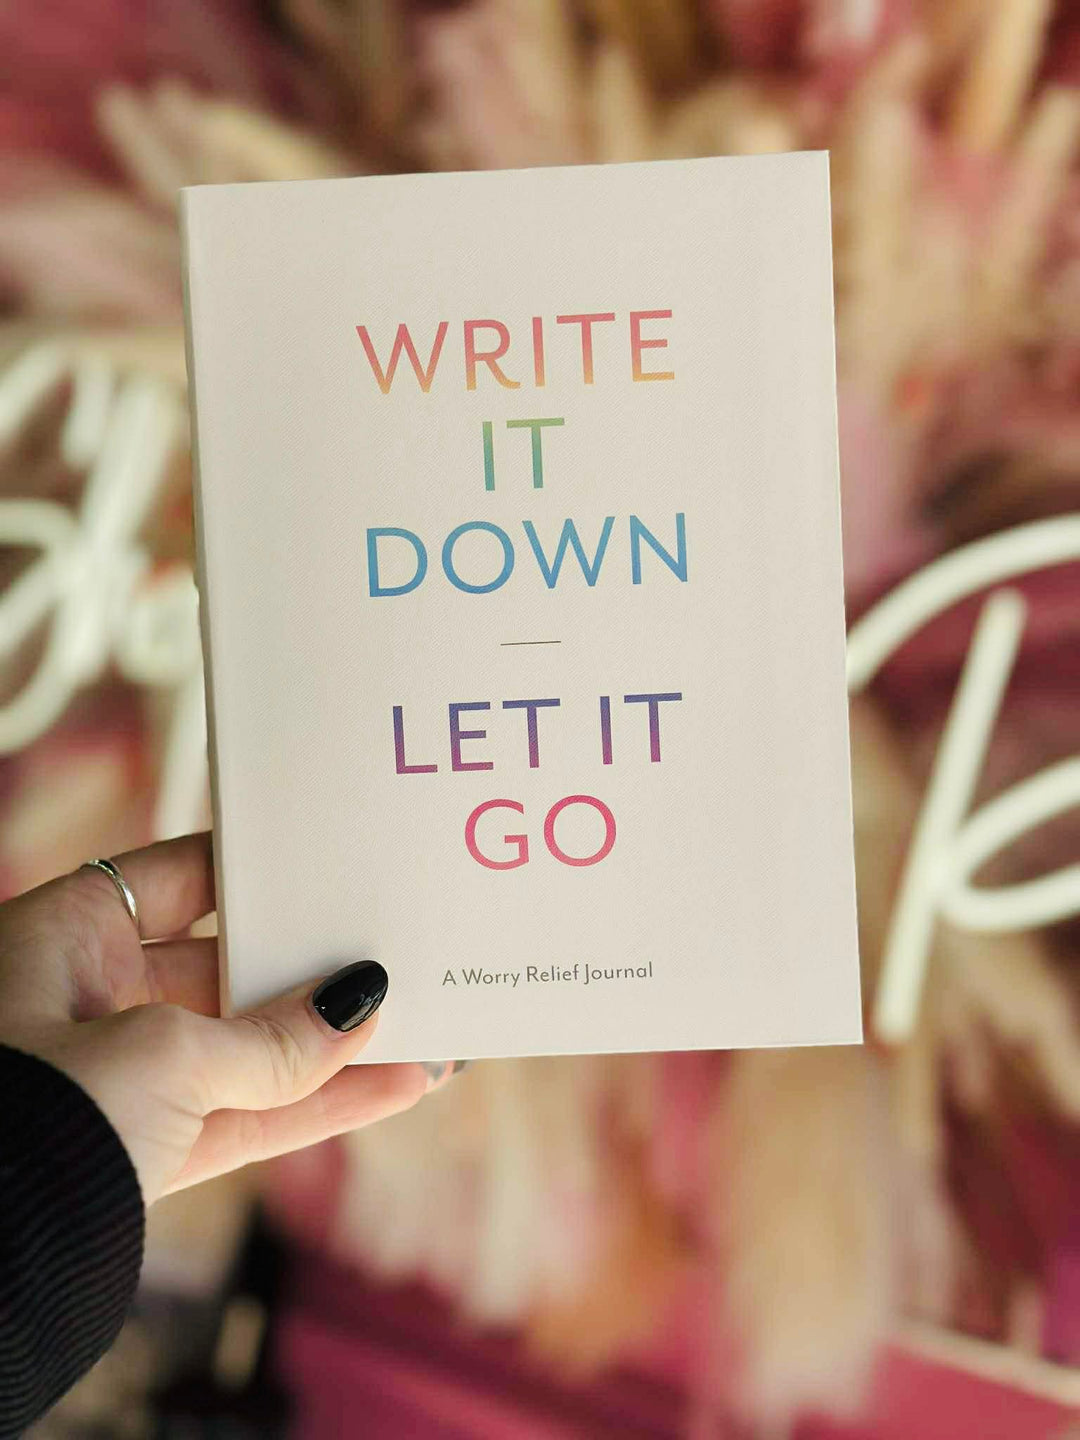 WRITE
IT
DOWN
LET IT
GO
A Worry Relief Journal